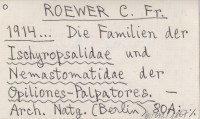 ROEWER C. Fr.
1914... Die Familien der
Ischyropsalidae und
Nemastomatidae der
Opiliones-Palpatores. —
Arch. Natg. (Berlin) 80A: